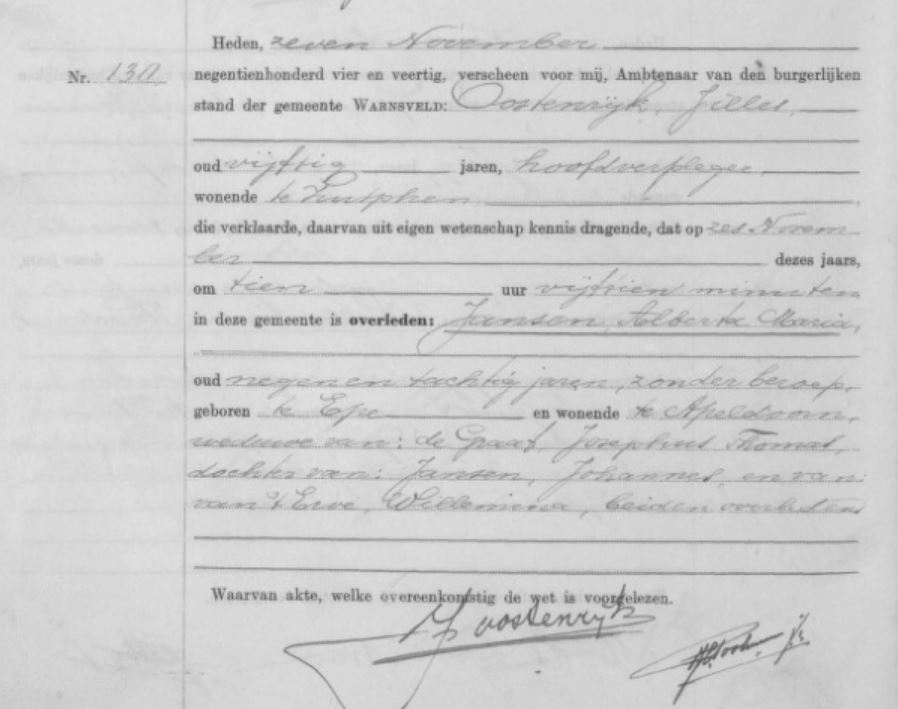 Heden, zeven November
Nr. 130 negentienhonderd vier en veertig, verscheen voor mij, Ambtenaar van den burgerlijken
stand der gemeente WARNSVELD: Oostenrijk, Jilles,
oud vijftig jaren, hoofdverpleger,
wonende te Zutphen,
die verklaarde, daarvan uit eigen wetenschap kennis dragende, dat op zes Novem
ber dezes jaars,
om tien uur vijftien minuten
in deze gemeente is overleden: Jansen, Alberta Maria,
oud negen en tachtig jaren, zonder beroep,
geboren te Epe en wonende te Apeldoorn,
weduwe van: de Graaf, Josephus Thomas,
dochter van: Jansen, Johannes, en van:
van 't Erve, Willemina, beiden overleden
Waarvan akte, welke overeenkomstig de wet is voorgelezen.
J Oostenrijk